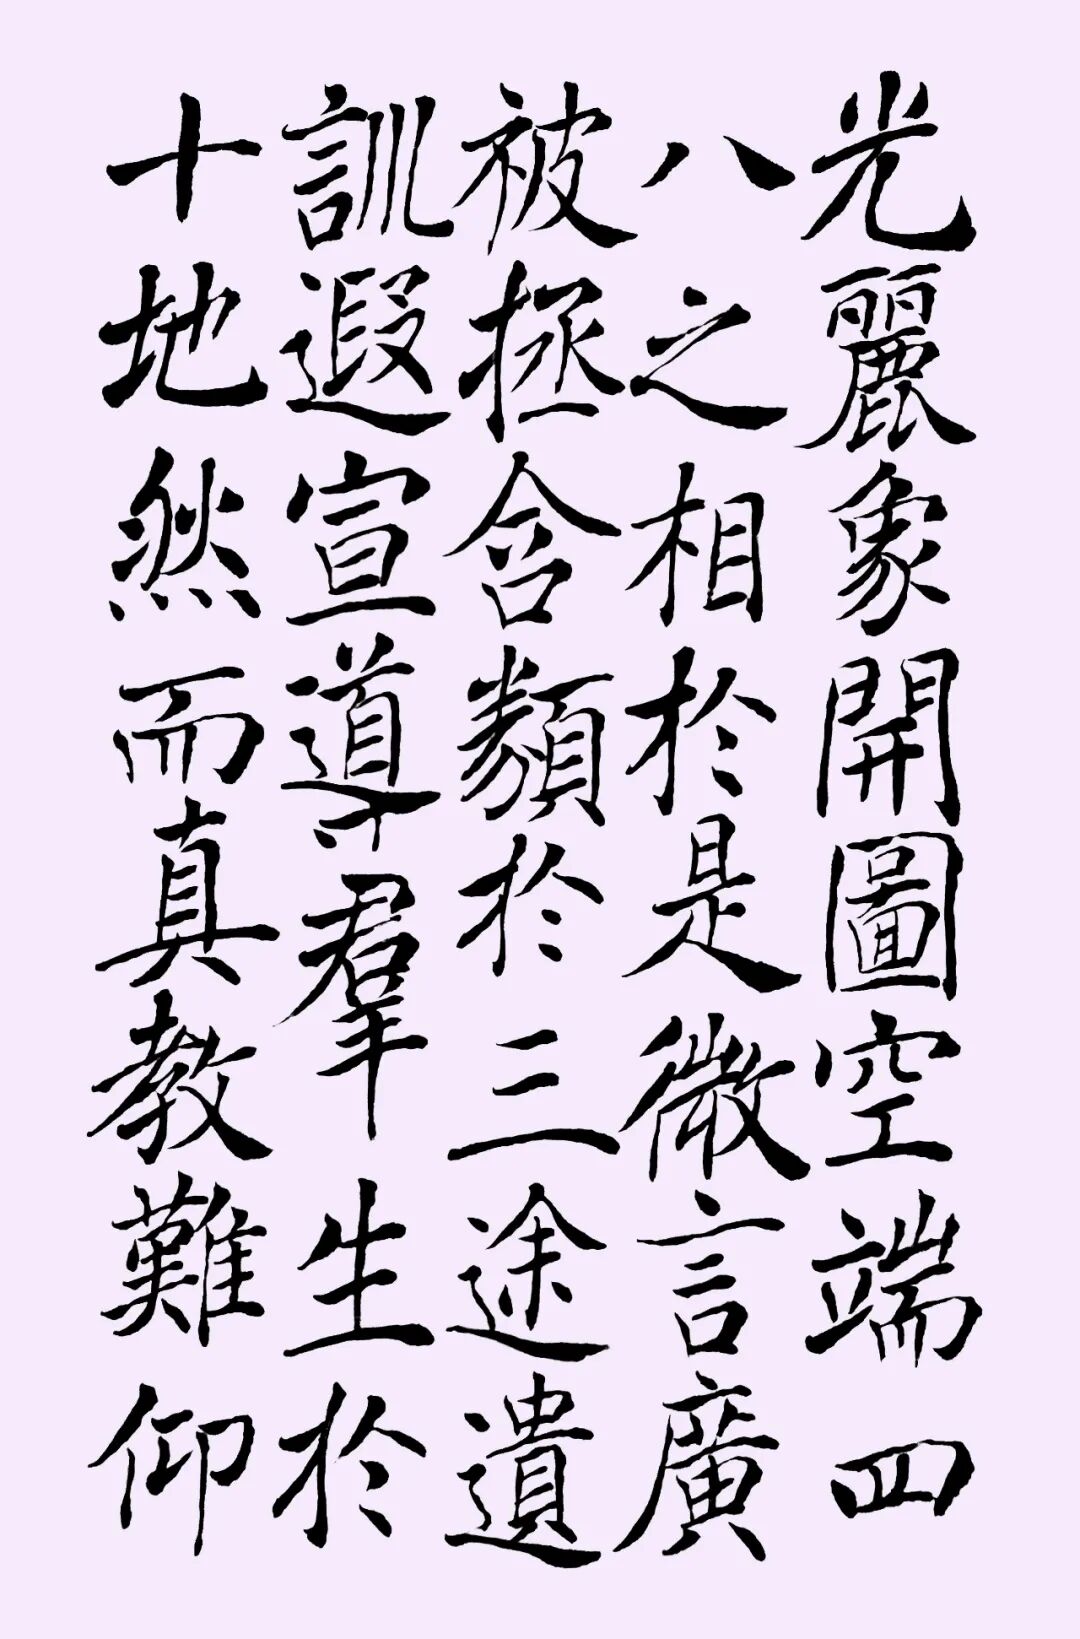 光麗象開圖空端四
八之相於是微言廣
被拯含類於三途遺
訓遐宣導羣生於
十地然而真教難仰